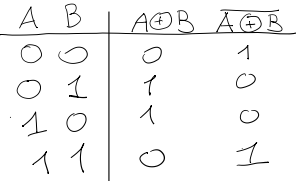 A B A⊕B A̅⊕̅B̅
0 0 0 1
0 1 1 0
1 0 1 0
1 1 0 1